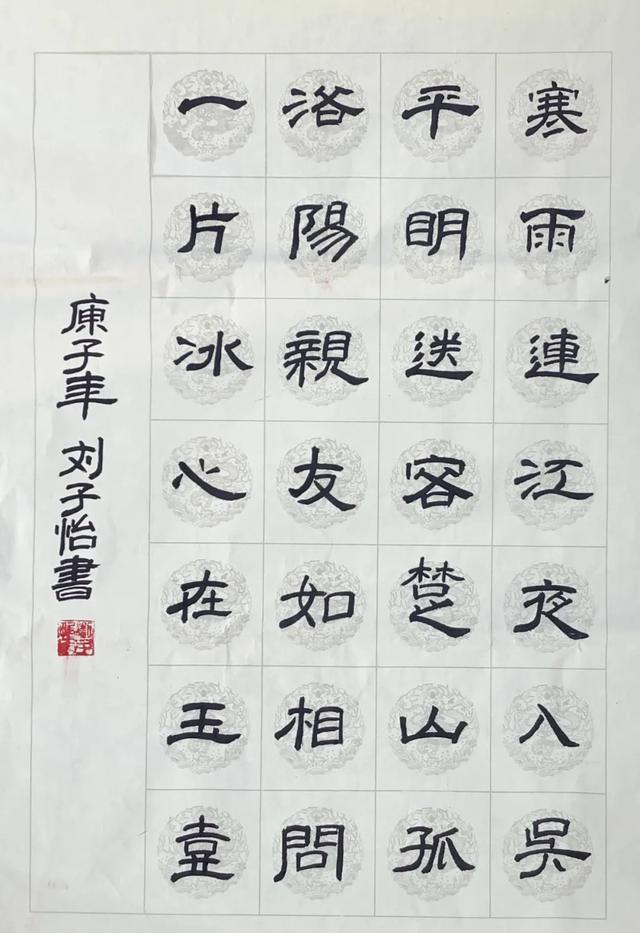 寒雨連江夜入吳
平明送客楚山孤
洛陽親友如相問
一片冰心在玉壺
庚子年 刘子怡書